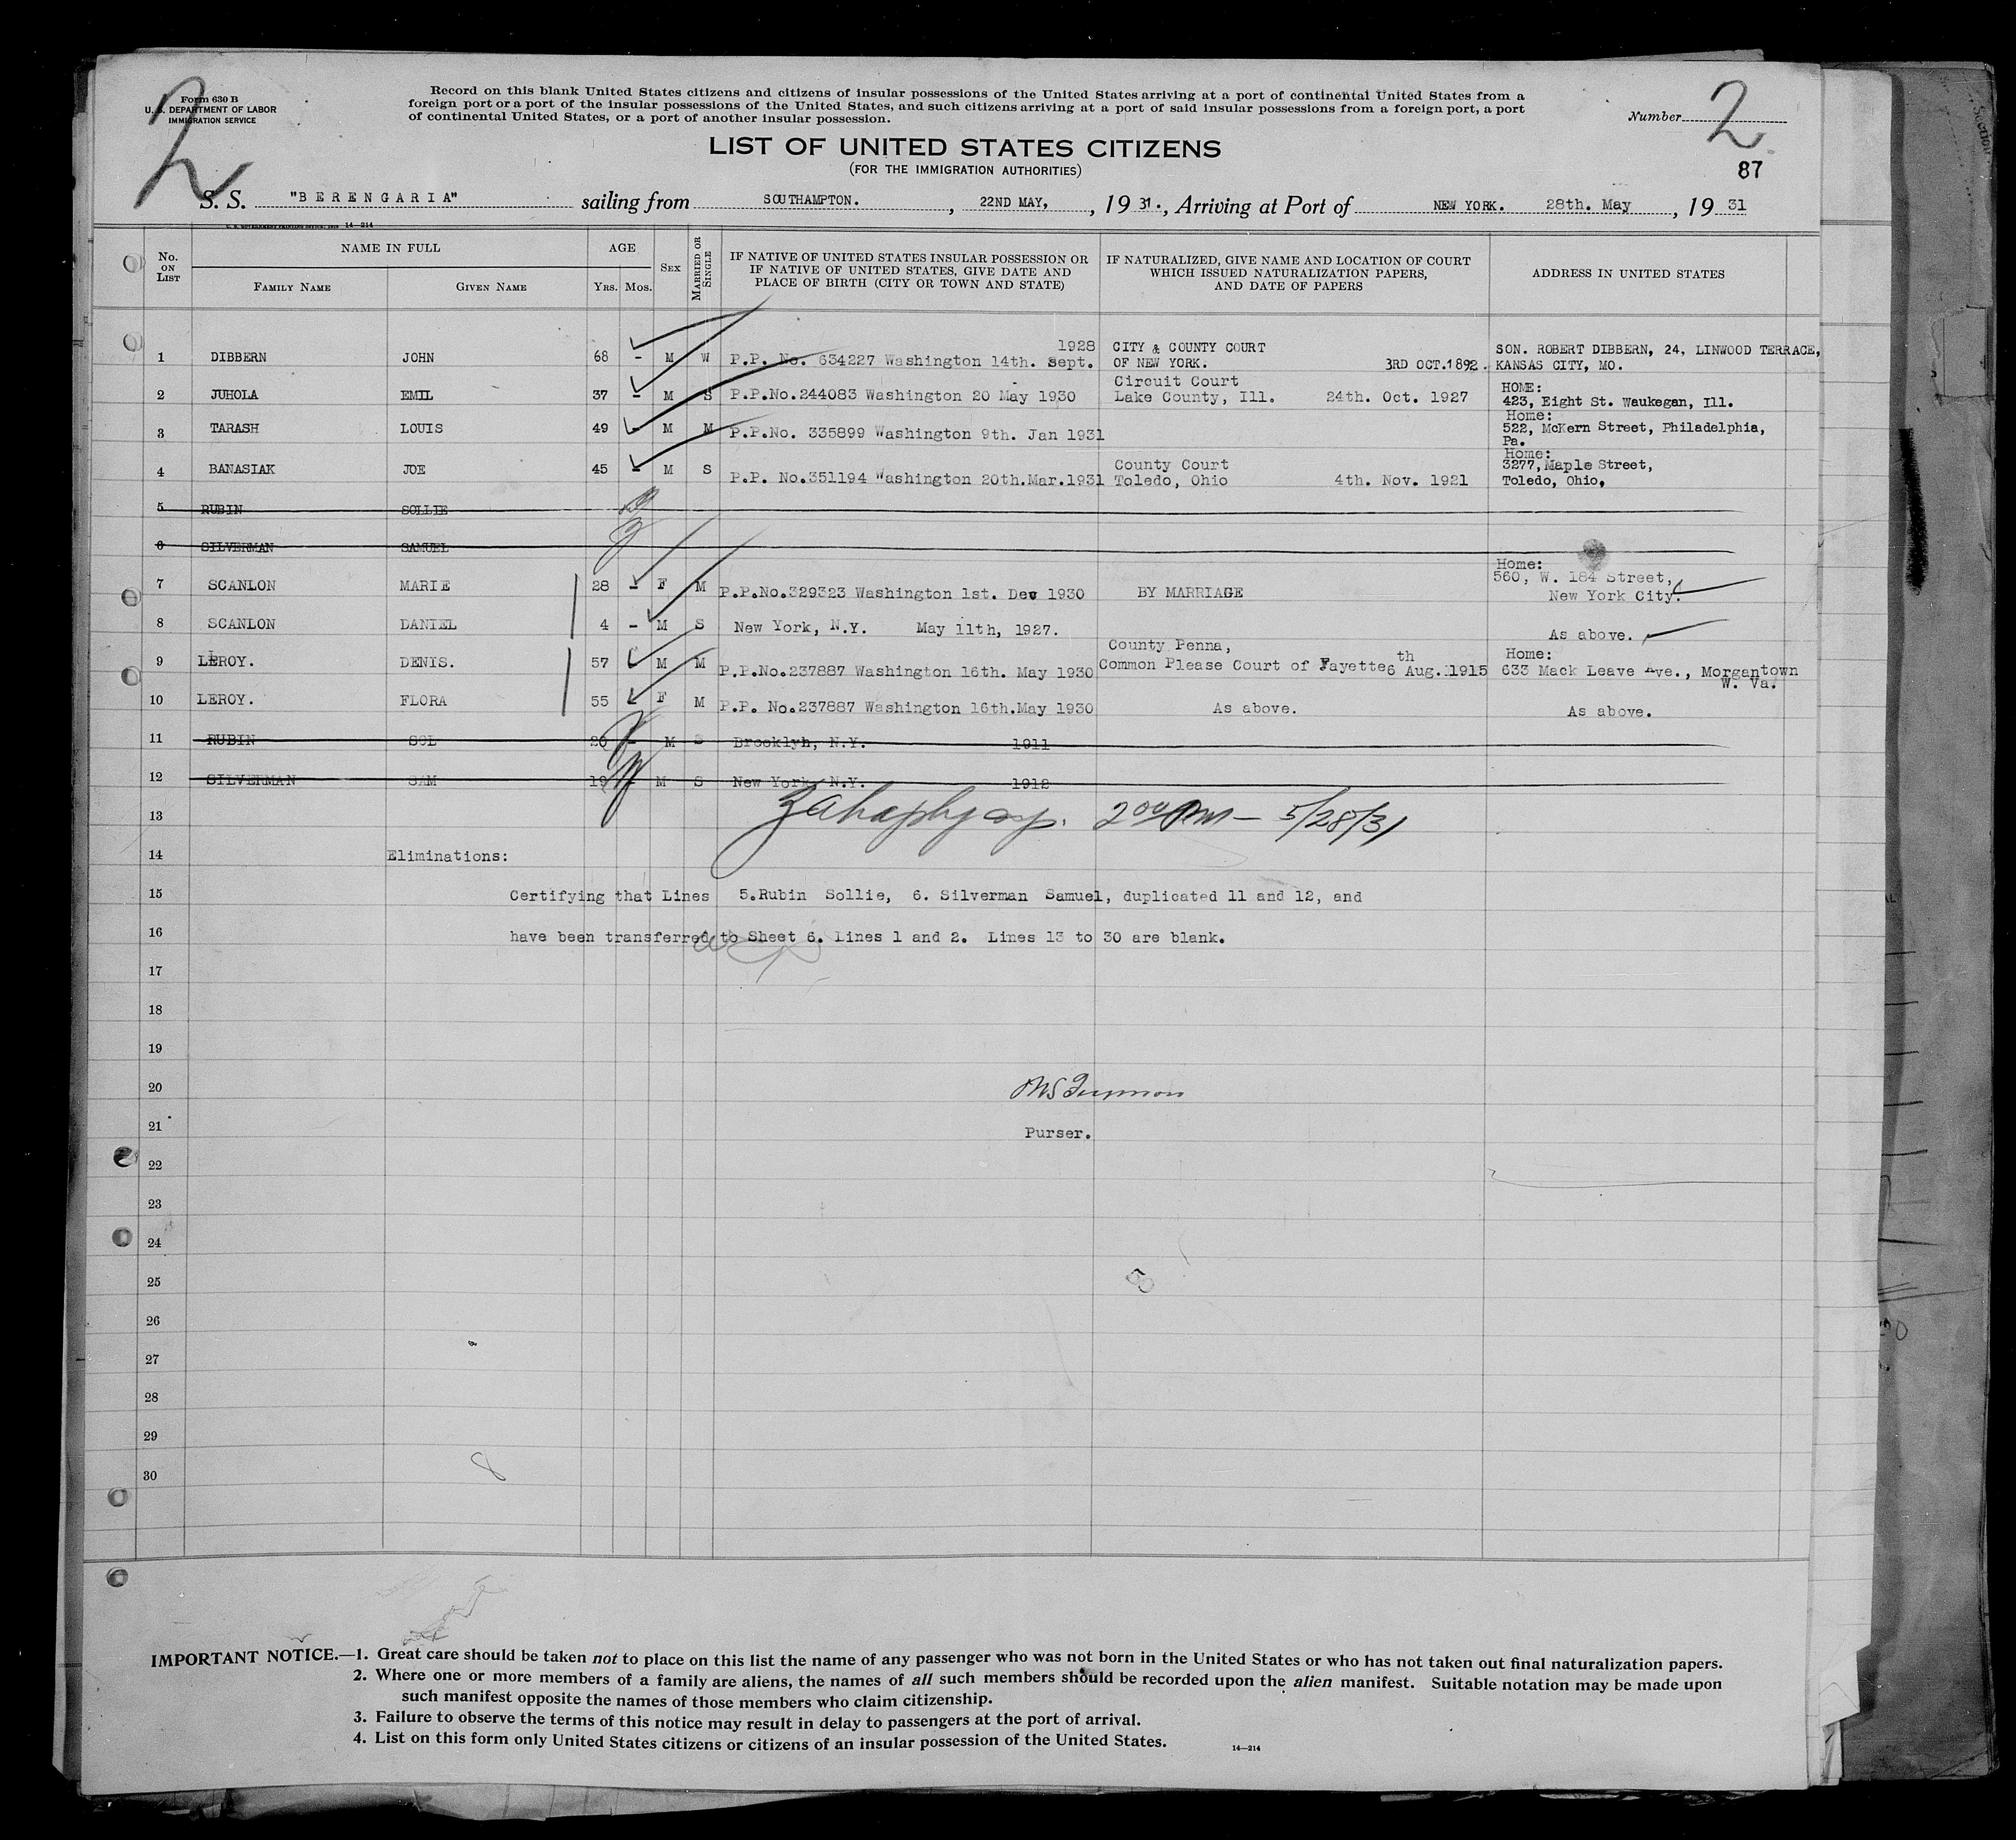 Form 630 B
U. S. DEPARTMENT OF LABOR
IMMIGRATION SERVICE
2
Record on this blank United States citizens and citizens of insular possessions of the United States arriving at a port of continental United States from a
foreign port or a port of the insular possessions of the United States, and such citizens arriving at a port of said insular possessions from a foreign port, a port
of continental United States, or a port of another insular possession.
Number 2
LIST OF UNITED STATES CITIZENS
(FOR THE IMMIGRATION AUTHORITIES)
87
S. S. "BERENGARIA" sailing from SOUTHAMPTON. , 22ND MAY, , 1931., Arriving at Port of NEW YORK. 28th. May , 1931
14—214
No. ON LIST NAME IN FULL AGE SEX MARRIED OR SINGLE IF NATIVE OF UNITED STATES INSULAR POSSESSION OR IF NATIVE OF UNITED STATES, GIVE DATE AND PLACE OF BIRTH (CITY OR TOWN AND STATE) IF NATURALIZED, GIVE NAME AND LOCATION OF COURT WHICH ISSUED NATURALIZATION PAPERS, AND DATE OF PAPERS ADDRESS IN UNITED STATES
FAMILY NAME GIVEN NAME YRS. MOS.
1 DIBBERN JOHN 68 - M W P.P. No. 634227 Washington 14th. Sept. 1928 CITY & COUNTY COURT OF NEW YORK. 3RD OCT.1892. SON. ROBERT DIBBERN, 24, LINWOOD TERRACE, KANSAS CITY, MO.
2 JUHOLA EMIL 37 - M S P.P.No.244083 Washington 20 May 1930 Circuit Court Lake County, Ill. 24th. Oct. 1927 HOME: 423, Eight St. Waukegan, Ill.
3 TARASH LOUIS 49 - M M P.P.No. 335899 Washington 9th. Jan 1931 Home: 522, McKern Street, Philadelphia, Pa.
4 BANASIAK JOE 45 - M S P.P. No.351194 Washington 20th.Mar.1931 County Court Toledo, Ohio 4th. Nov. 1921 Home: 3277, Maple Street, Toledo, Ohio.
5 RUBIN SOLLIE
6 SILVERMAN SAMUEL
7 SCANLON MARIE 28 - F M P.P.No.329323 Washington 1st. Dec 1930 BY MARRIAGE Home: 560, W. 184 Street, New York City.
8 SCANLON DANIEL 4 - M S New York, N.Y. May 11th, 1927. As above.
9 LEROY. DENIS. 57 M M P.P.No.237887 Washington 16th. May 1930 County Penna, Common Please Court of Fayette 6th Aug. 1915 Home: 633 Mack Leave Ave., Morgantown W. Va.
10 LEROY. FLORA 55 F M P.P. No.237887 Washington 16th.May 1930 As above. As above.
11 RUBIN SOL 20 - M S Brooklyn, N.Y. 1911
12 SILVERMAN SAM 19 - M S New York, N.Y. 1912
13 2 00 PM — 5/28/31
14 Eliminations:
15 Certifying that Lines 5.Rubin Sollie, 6. Silverman Samuel, duplicated 11 and 12, and
16 have been transferred to Sheet 6. Lines 1 and 2. Lines 13 to 30 are blank.
17
18
19
20
21 Purser.
22
23
24
25
26
27
28
29
30
IMPORTANT NOTICE.—1. Great care should be taken not to place on this list the name of any passenger who was not born in the United States or who has not taken out final naturalization papers.
2. Where one or more members of a family are aliens, the names of all such members should be recorded upon the alien manifest. Suitable notation may be made upon
such manifest opposite the names of those members who claim citizenship.
3. Failure to observe the terms of this notice may result in delay to passengers at the port of arrival.
4. List on this form only United States citizens or citizens of an insular possession of the United States.
14—214